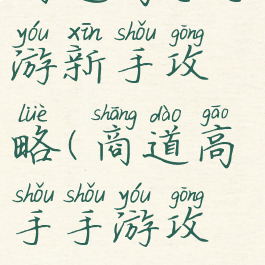 yóu xīn shǒu gōng
游新手攻
lüè shāng dào gāo
略(商道高
shǒu shǒu yóu gōng
手手游攻